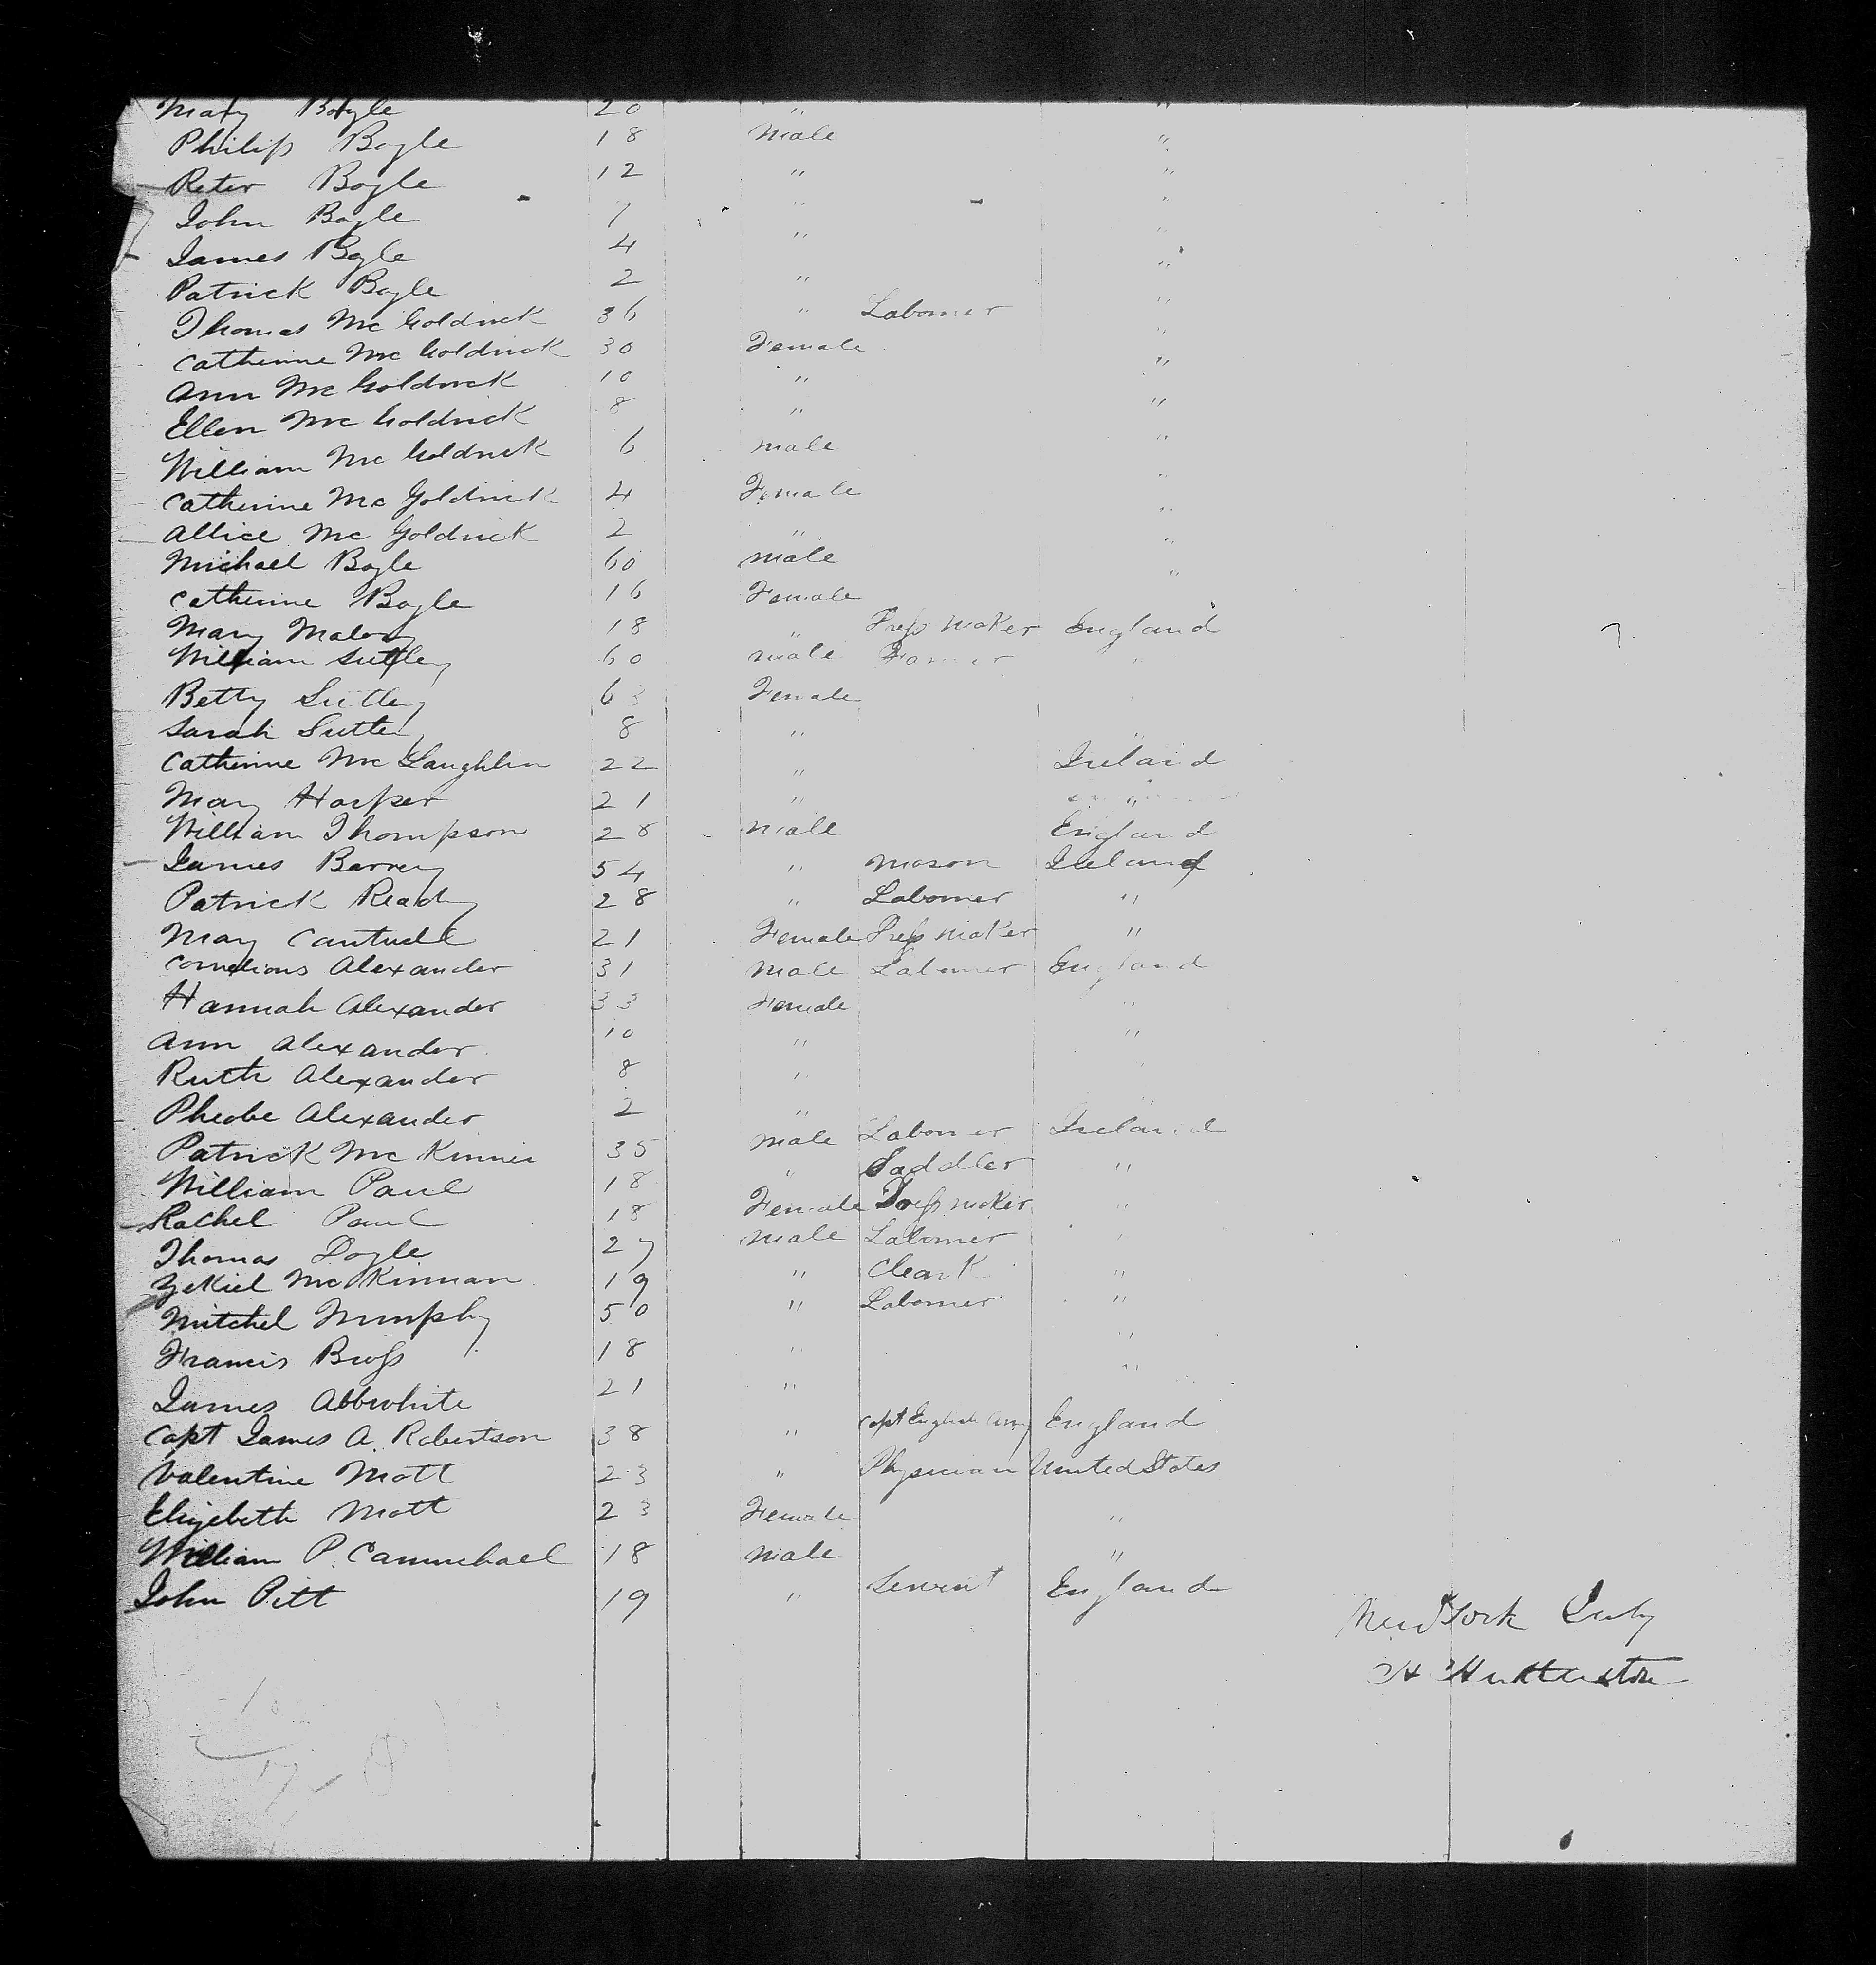 Mary Boyle 20 " "
Philip Boyle 18 Male "
Peter Boyle 12 " "
John Boyle " "
James Boyle 4 " "
Patrick Boyle 2 " "
Thomas Mc Goldrick 36 " Labourer "
Catherine Mc Goldrick 30 Female "
Ann Mc Goldrick 10 " "
Ellen Mc Goldrick 8 " "
William Mc Goldrick 6 male "
Catherine Mc Goldrick 4 Female "
Allice Mc Goldrick 2 " "
Michael Boyle 60 male "
Catherine Boyle 16 Female "
Mary Malony 18 " Dress maker England
William Sutley 60 male Farmer "
Betty Sutley 63 Female
Sarah Sutley 8 " "
Catherine Mc Laughlin 22 " Ireland
Mary Harper 21 " "
William Thompson 28 Male England
James Barrey 54 " Mason Ireland
Patrick Ready 28 " Labourer "
Mary Cantwell 21 Female Dress maker "
Cornelious Alexander 31 Male Labourer England
Hannah Alexander 33 Female "
Ann Alexander 10 " "
Ruth Alexander 8 "
Pheobe Alexander 2 " "
Patrick Mc Kinnie 35 Male Labourer Ireland
William Paul 18 " Saddler "
Rachel Paul 18 Female Dress maker "
Thomas Doyle 27 Male Labourer "
Zekiel Mc Kinnan 19 " Cleark "
Mitchel Murphy 50 " Labourer "
Francis Bross 18 " "
James Abbwhite 21 " "
Capt James A. Robertson 38 " Capt English Army England
Valentine Mott 23 " Physician United States
Elizebeth Mott 23 Female "
William P. Carmichael 18 Male "
John Pitt 19 " Servent England
New York July